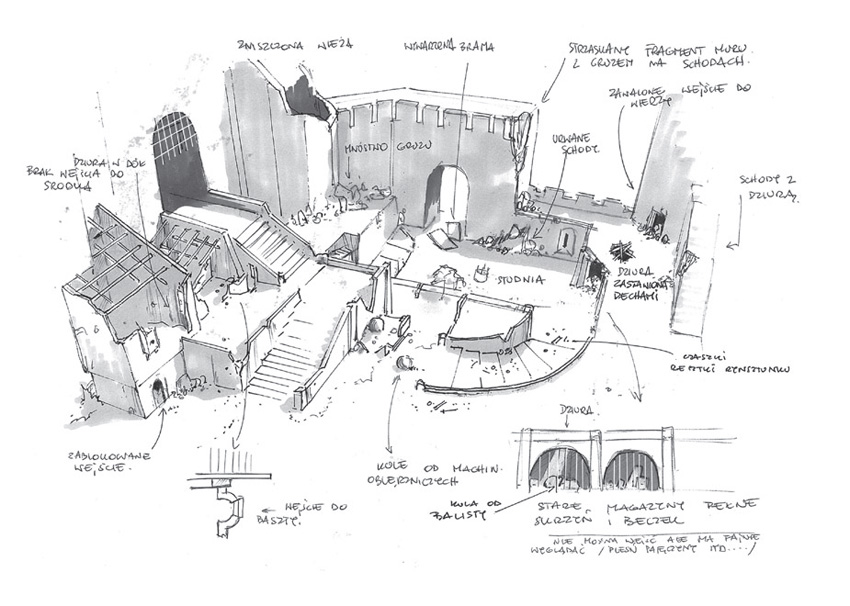 ZNISZCZONA WIEŻA
WYWAŻONA BRAMA
STRZASKANY FRAGMENT MURU
Z GRUZEM NA SCHODACH.
ZAWALONE WEJŚCIE DO
WIERZY
MNÓSTWO GRUZU
URWANE
SCHODY
DZIURA W DÓŁ
BRAK WEJŚCIA DO
ŚRODKA
SCHODY Z
DZIURĄ
STUDNIA
DZIURA
ZASŁONIONA
DECHAMI
CZASZKI
RESZTKI RYNSZTUNKU
DZIURA
ZABLOKOWANE
WEJŚCIE.
KULE OD MACHIN
OBLĘŻNICZYCH
WEJŚCIE DO
BASZTY.
KULA OD
BALISTY
STARE MAGAZYNY PEŁNE
SKRZYŃ I BECZEK
NIE MOŻNA WEJŚĆ ALE MA FAJNIE
WYGLĄDAĆ / PLEŚŃ PAJĘCZYNY ITD..../